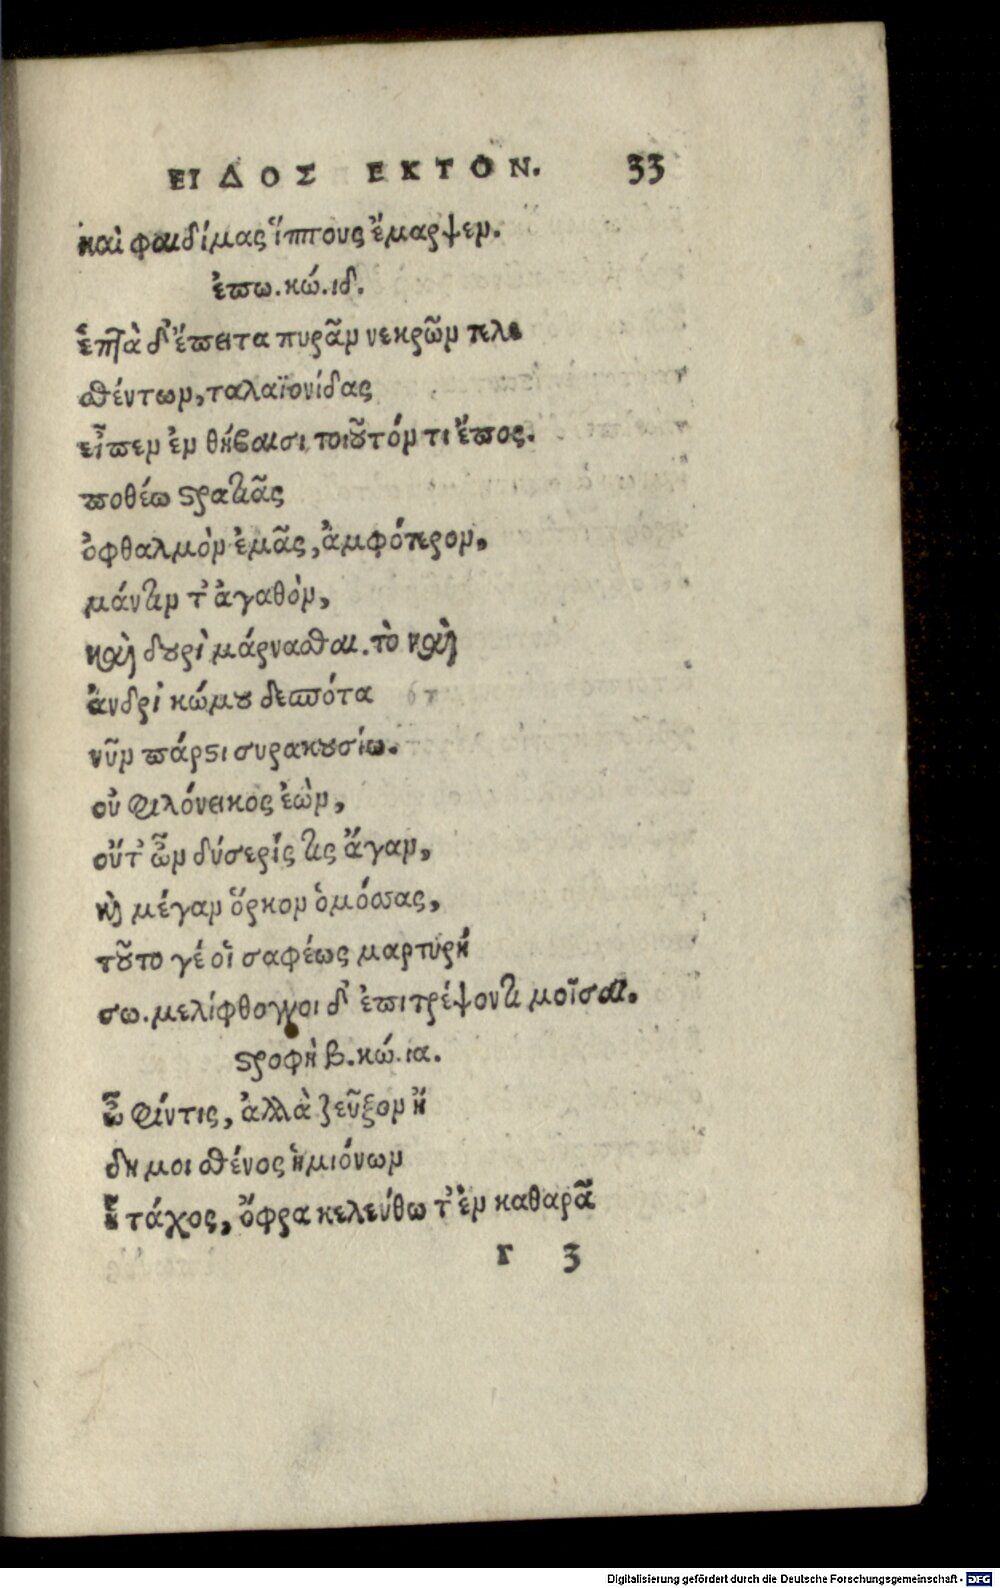 ΕΙΔΟΣ ΕΚΤΟΝ. 33
καὶ φαιδίμας ἵππους ἔμαρψεν.
ἐπω. κώ. ιδ.
ἑπτὰ δ' ἔπειτα πυρᾶν νεκρῶν τελε
σθέντων, ταλαϊονίδας
εἶπεν ἐν θήβαισι τοιοῦτόν τι ἔπος.
ποθέω στρατιᾶς
ὀφθαλμὸν ἐμᾶς, ἀμφότερον,
μάντιν τ' ἀγαθὸν,
καὶ δουρὶ μάρνασθαι. τὸ καὶ
ἀνδρὶ κώμου δεσπότα
νῦν πάρεστι συρακουσίω.
οὐ φιλόνεικος ἐὼν,
οὔτ' ὦν δύσερίς τις ἄγαν,
καὶ μέγαν ὅρκον ὀμόσσας,
τοῦτο γέ οἱ σαφέως μαρτυρή
σω. μελίφθογγοι δ' ἐπιτρέψοντι μοῖσαι.
στροφὴ β. κώ. ια.
ὦ φίντις, ἀλλὰ ζεῦξον ἤ
δη μοι σθένος ἡμιόνων
ᾗ τάχος, ὄφρα κελεύθω τ' ἐν καθαρᾶ
Γ 3
Digitalisierung gefördert durch die Deutsche Forschungsgemeinschaft - DFG